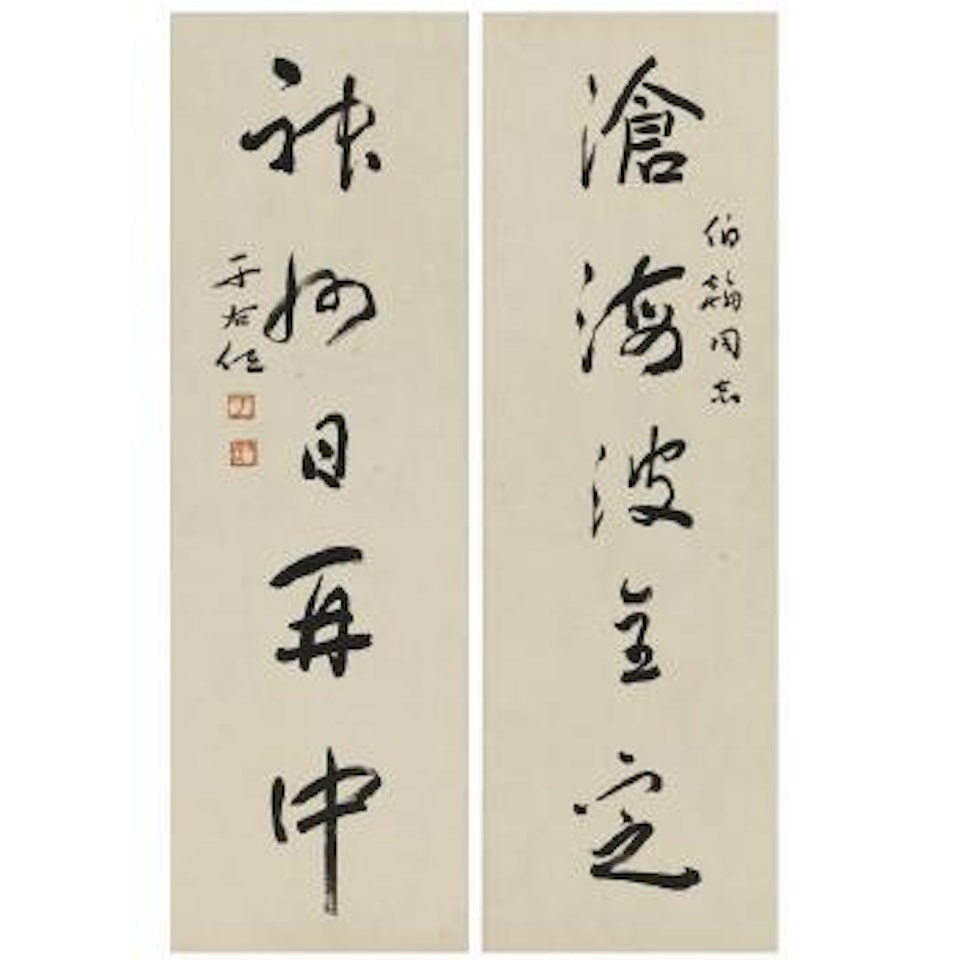 滄海波全定
伯翰同志
神州日再中
于右任